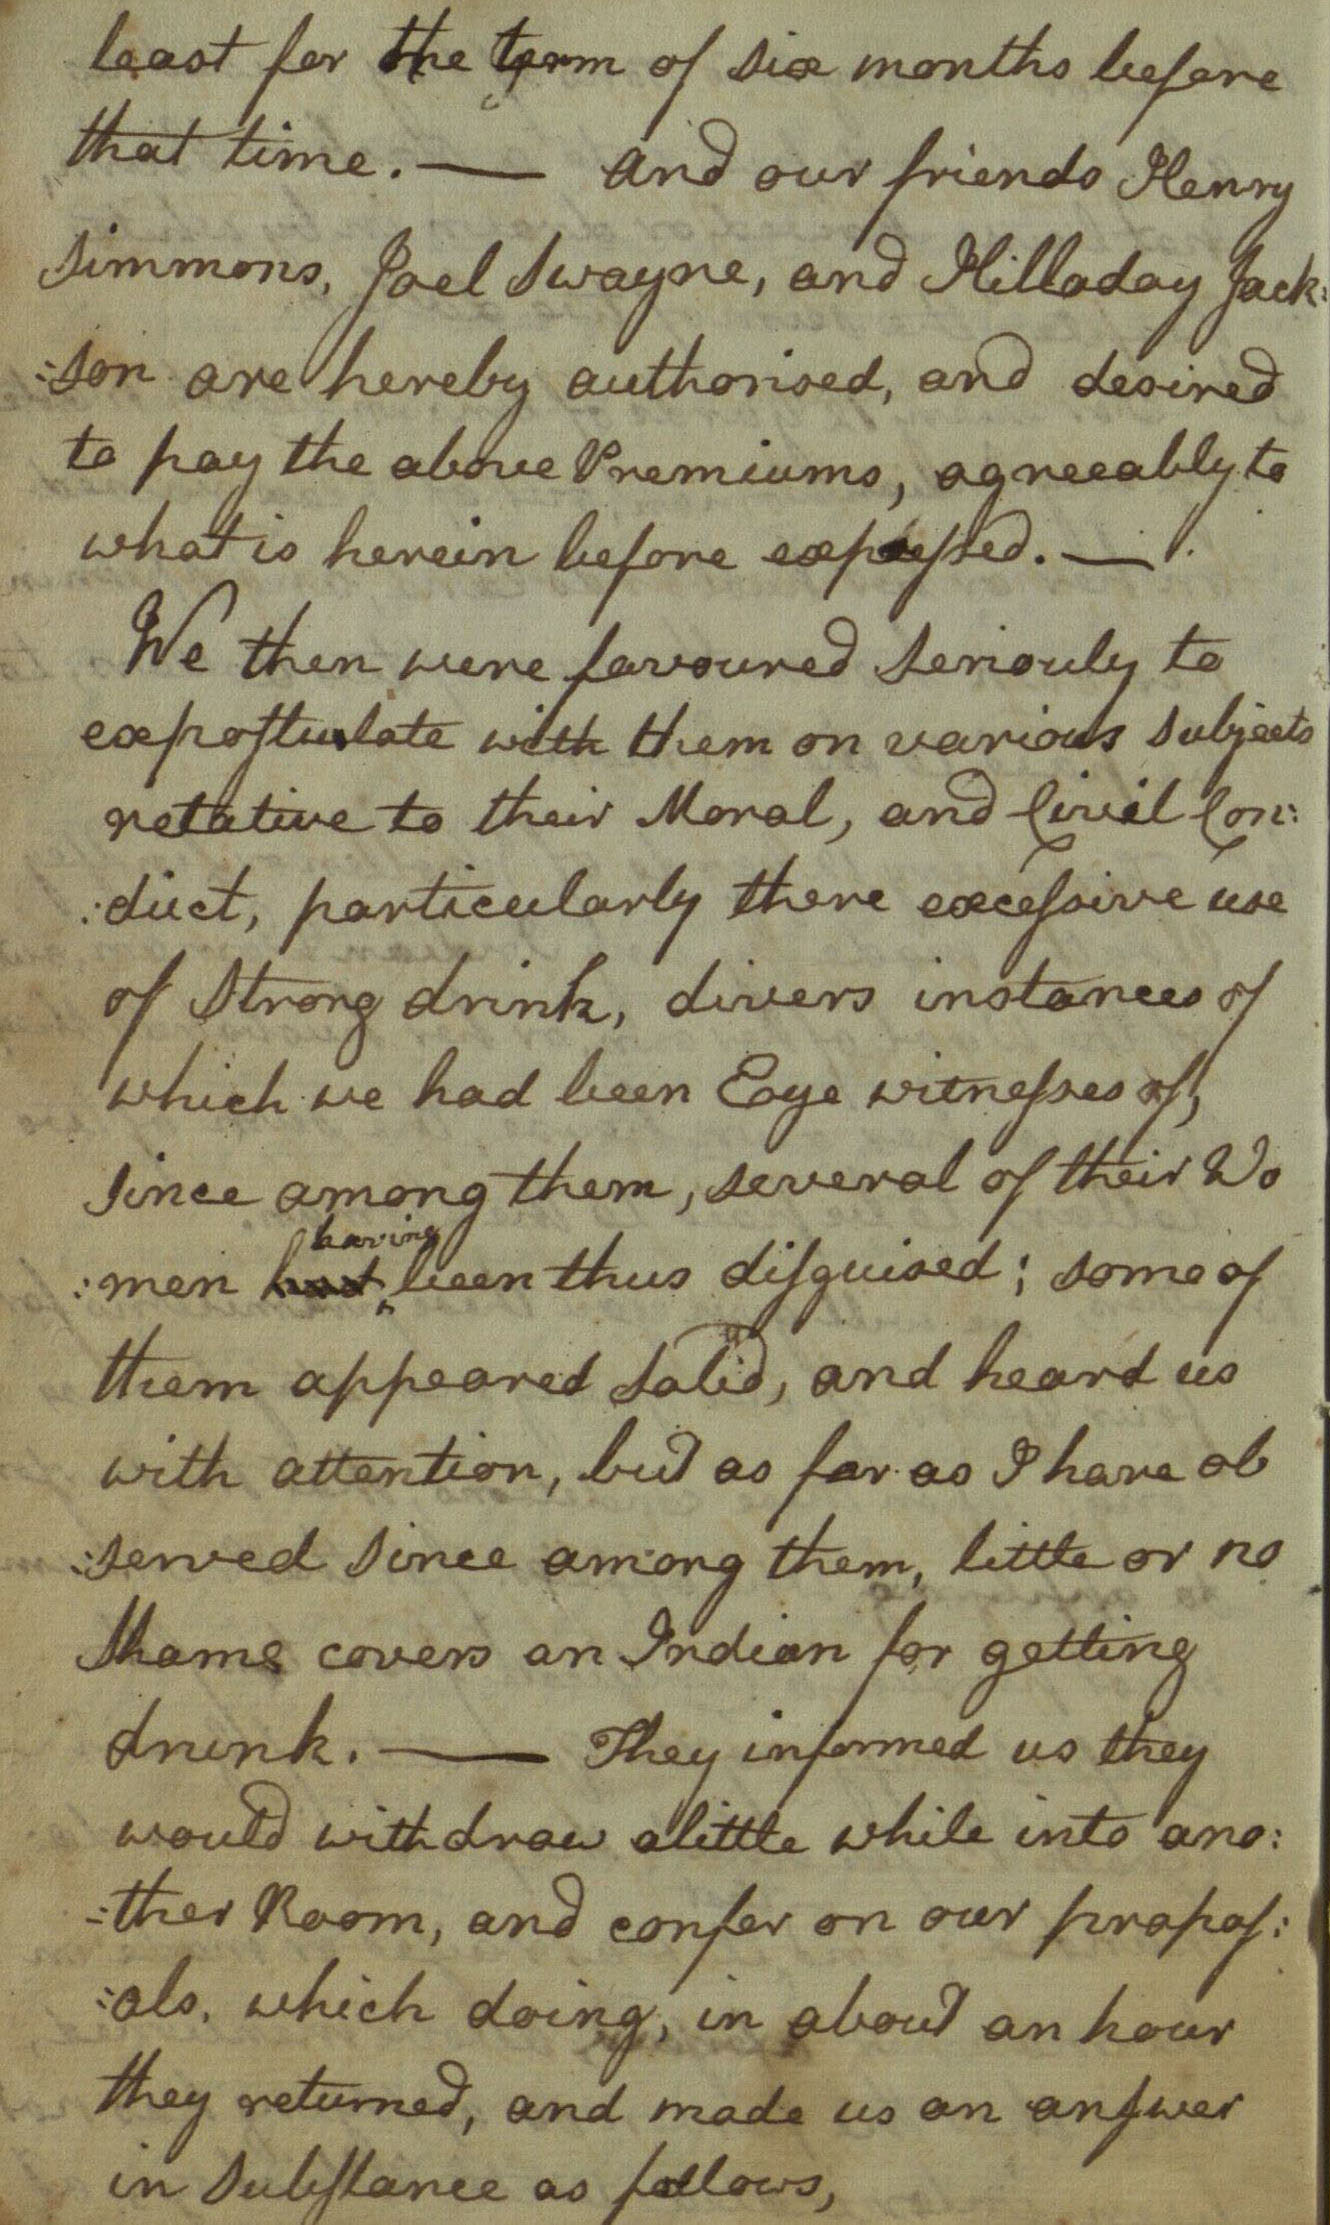 least for the term of six months before
that time. — And our friends Henry
Simmons, Joel Swayne, and Hilladay Jack:
:son are hereby authorised, and desired
to pay the above Premiums, agreeably to
what is herein before expressed. —
We then were favoured seriouly to
expostulate with them on various subjects
retative to their Moral, and Civil Con:
:duct, particularly there excessive use
of Strong drink, divers instances of
which we had been Eye witnesses of,
since among them, several of their Wo
:men had having been thus disguised; some of
them appeared Solid, and heard us
with attention, but as far as I have ob
:served since among them, little or no
Shame covers an Indian for getting
drunk. — They informed us they
would withdraw alittle while into ano:
:ther Room, and confer on our propos:
:als, which doing, in about an hour
they returned, and made us an answer
in Substance as follows,